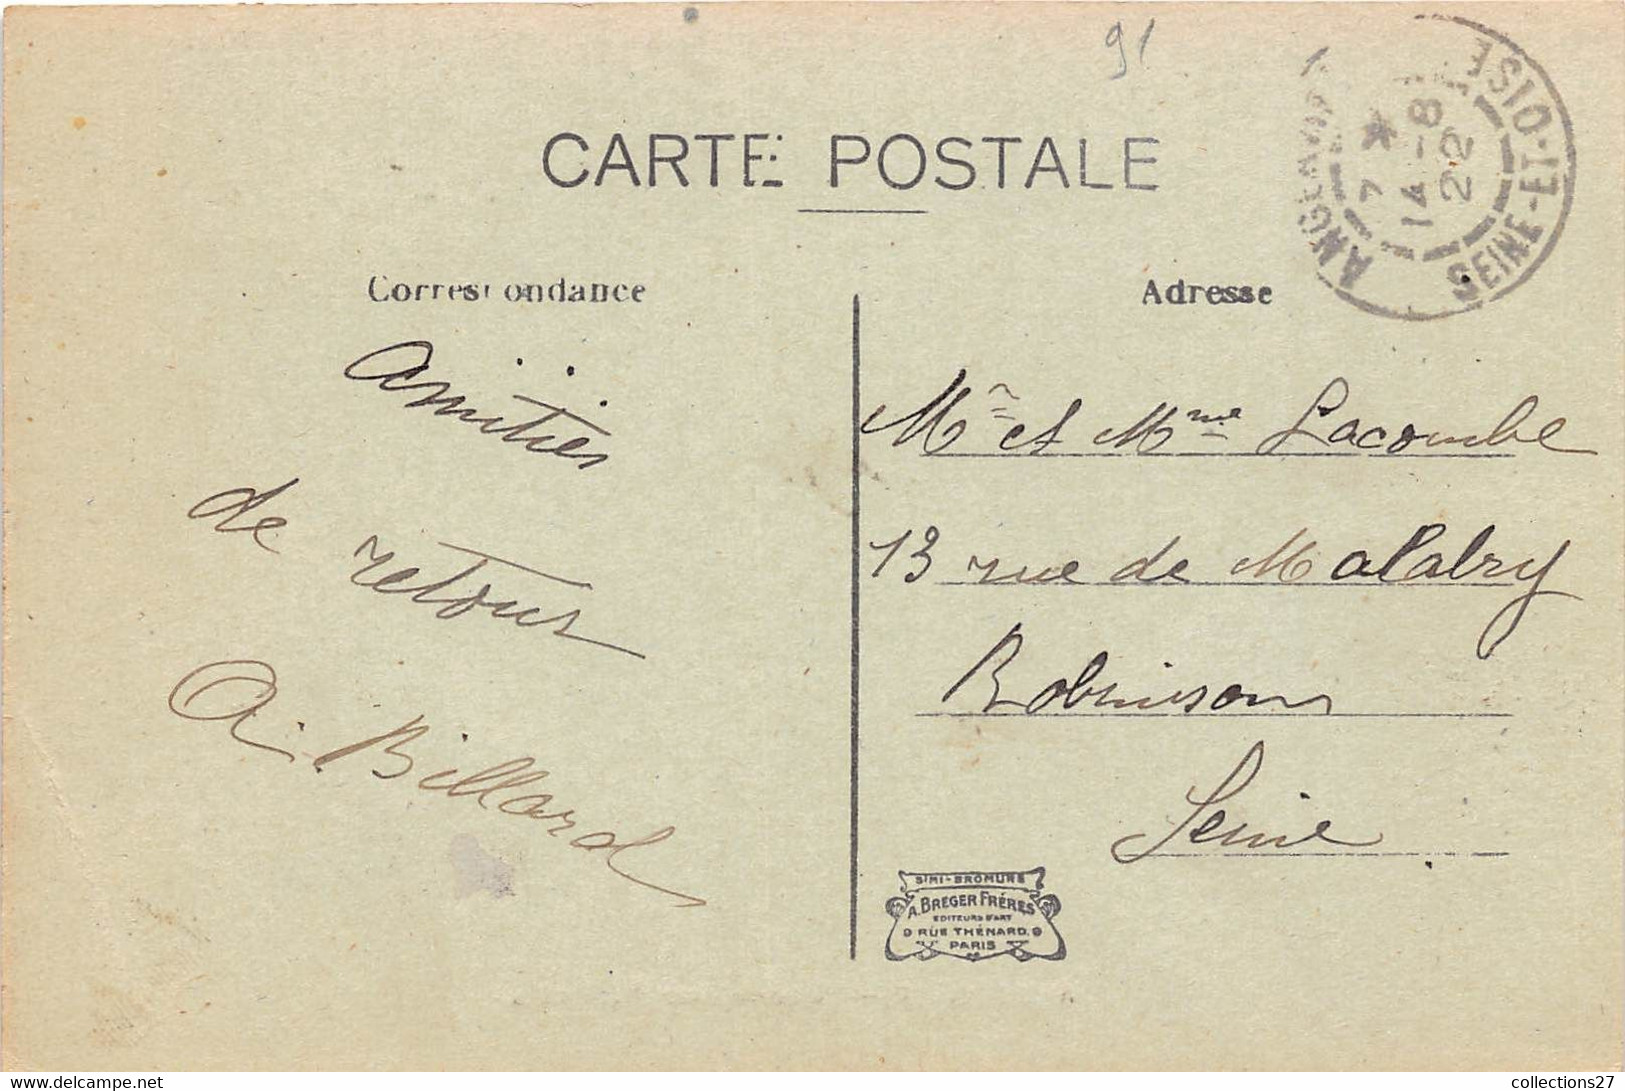 91
CARTE POSTALE
ANGERVILLE
SEINE-ET-OISE
7 *
14-8
22
Correspondance
Adresse
Amitiés
de retour
A. Billard
Mr et Mme Lacombe
13 rue de Malabry
Robinson
Seine
SIMI-BROMURE
A. BREGER FRÈRES
EDITEURS D'ART
9 RUE THÉNARD. 9
PARIS
www.delcampe.net
collections27